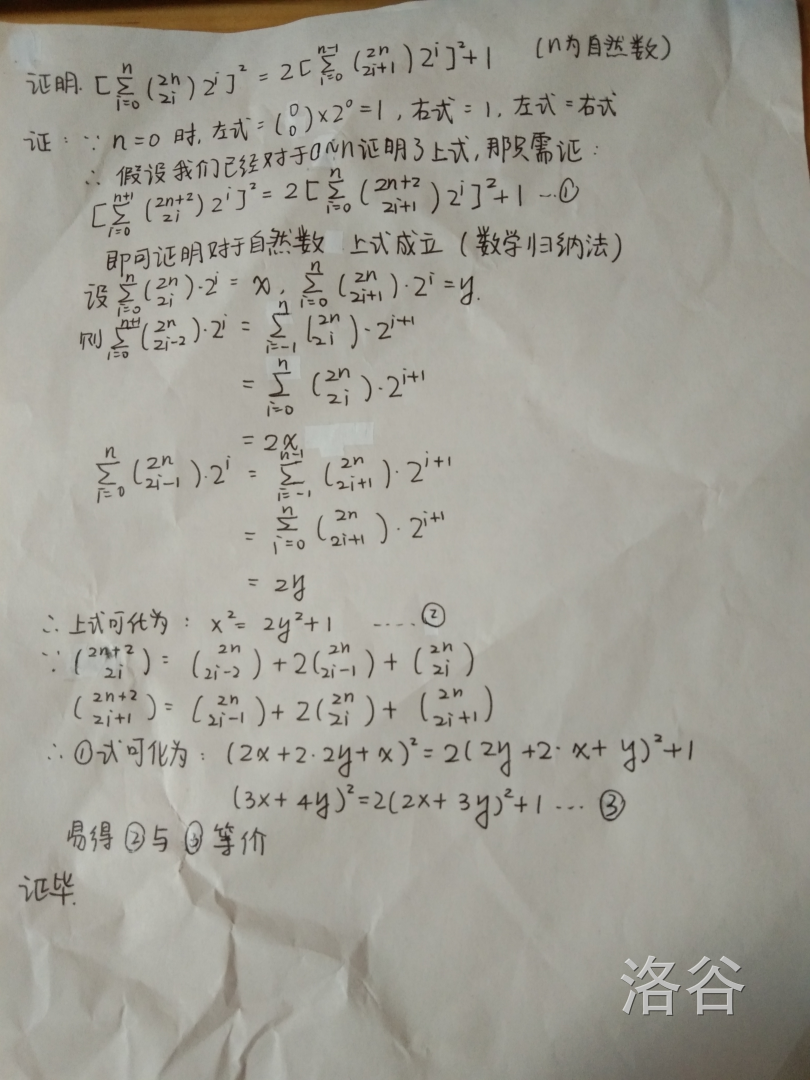 证明. [∑_{i=0}^{n} \binom{2n}{2i} 2^i]^2 = 2[∑_{i=0}^{n-1} \binom{2n}{2i+1} 2^i]^2+1 (n为自然数)
证: ∵ n=0 时, 左式=\binom{0}{0}×2^0=1, 右式=1, 左式=右式
∴ 假设我们已经对于0~n证明了上式, 那只需证:
[∑_{i=0}^{n+1} \binom{2n+2}{2i} 2^i]^2 = 2[∑_{i=0}^{n} \binom{2n+2}{2i+1} 2^i]^2+1 …①
即可证明对于自然数 上式成立 (数学归纳法)
设 ∑_{i=0}^{n} \binom{2n}{2i}·2^i = x, ∑_{i=0}^{n} \binom{2n}{2i+1}·2^i = y.
则 ∑_{i=0}^{n+1} \binom{2n}{2i-2}·2^i = ∑_{i=-1}^{n} \binom{2n}{2i}·2^{i+1}
= ∑_{i=0}^{n} \binom{2n}{2i}·2^{i+1}
= 2x
∑_{i=0}^{n} \binom{2n}{2i-1}·2^i = ∑_{i=-1}^{n-1} \binom{2n}{2i+1}·2^{i+1}
= ∑_{i=0}^{n} \binom{2n}{2i+1}·2^{i+1}
= 2y
∴ 上式可化为: x^2 = 2y^2+1 ……②
∵ \binom{2n+2}{2i} = \binom{2n}{2i-2}+2\binom{2n}{2i-1}+\binom{2n}{2i}
\binom{2n+2}{2i+1} = \binom{2n}{2i-1}+2\binom{2n}{2i}+\binom{2n}{2i+1}
∴ ①式可化为: (2x+2·2y+x)^2=2(2y+2·x+y)^2+1
(3x+4y)^2=2(2x+3y)^2+1 …③
易得②与③等价
证毕.
洛谷